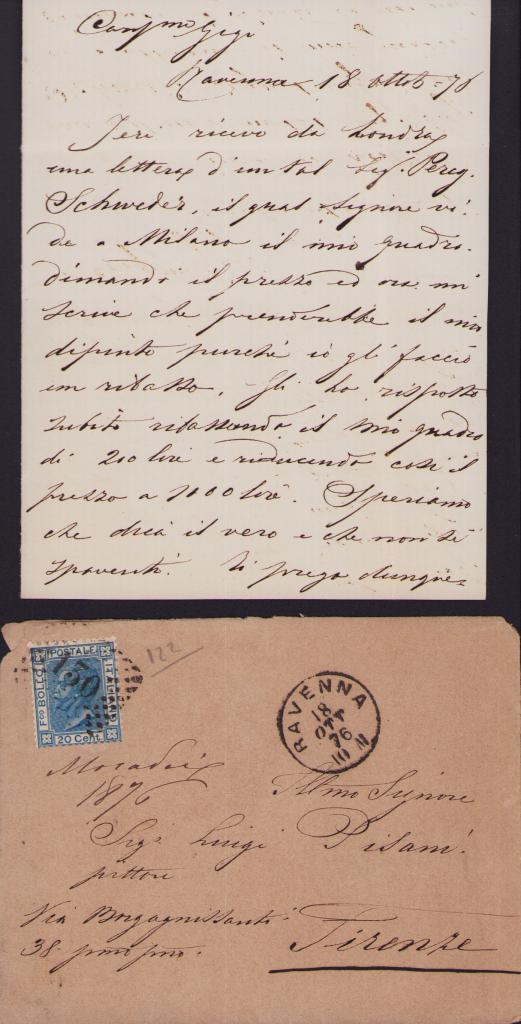 Cariſmo Gigi
Ravenna 18 ottob. 76
Jeri ricevo da Londra
una lettera d'un tal Sig. Pereg.
Schweder, il qual signore vi-
de a Milano il mio quadro.
dimandò il prezzo ed ora mi
scrive che prenderebbe il mio
dipinto purché io gli faccio
un ribasso. Gli ho risposto
subito ribassando il mio quadro
di 200 lire e riducendo così il
prezzo a 1000 lire. Speriamo
che dica il vero e che non si
spaventi. Ti prego dunque
FCO BOLLO POSTALE ITALIANO
20 Cent.
130
122
RAVENNA
18
OTT
76
10 M
1876
Illmo Signore
Sigr Luigi Pisani
pittore
Via Borgognissanti
38. pmo pno.
Firenze